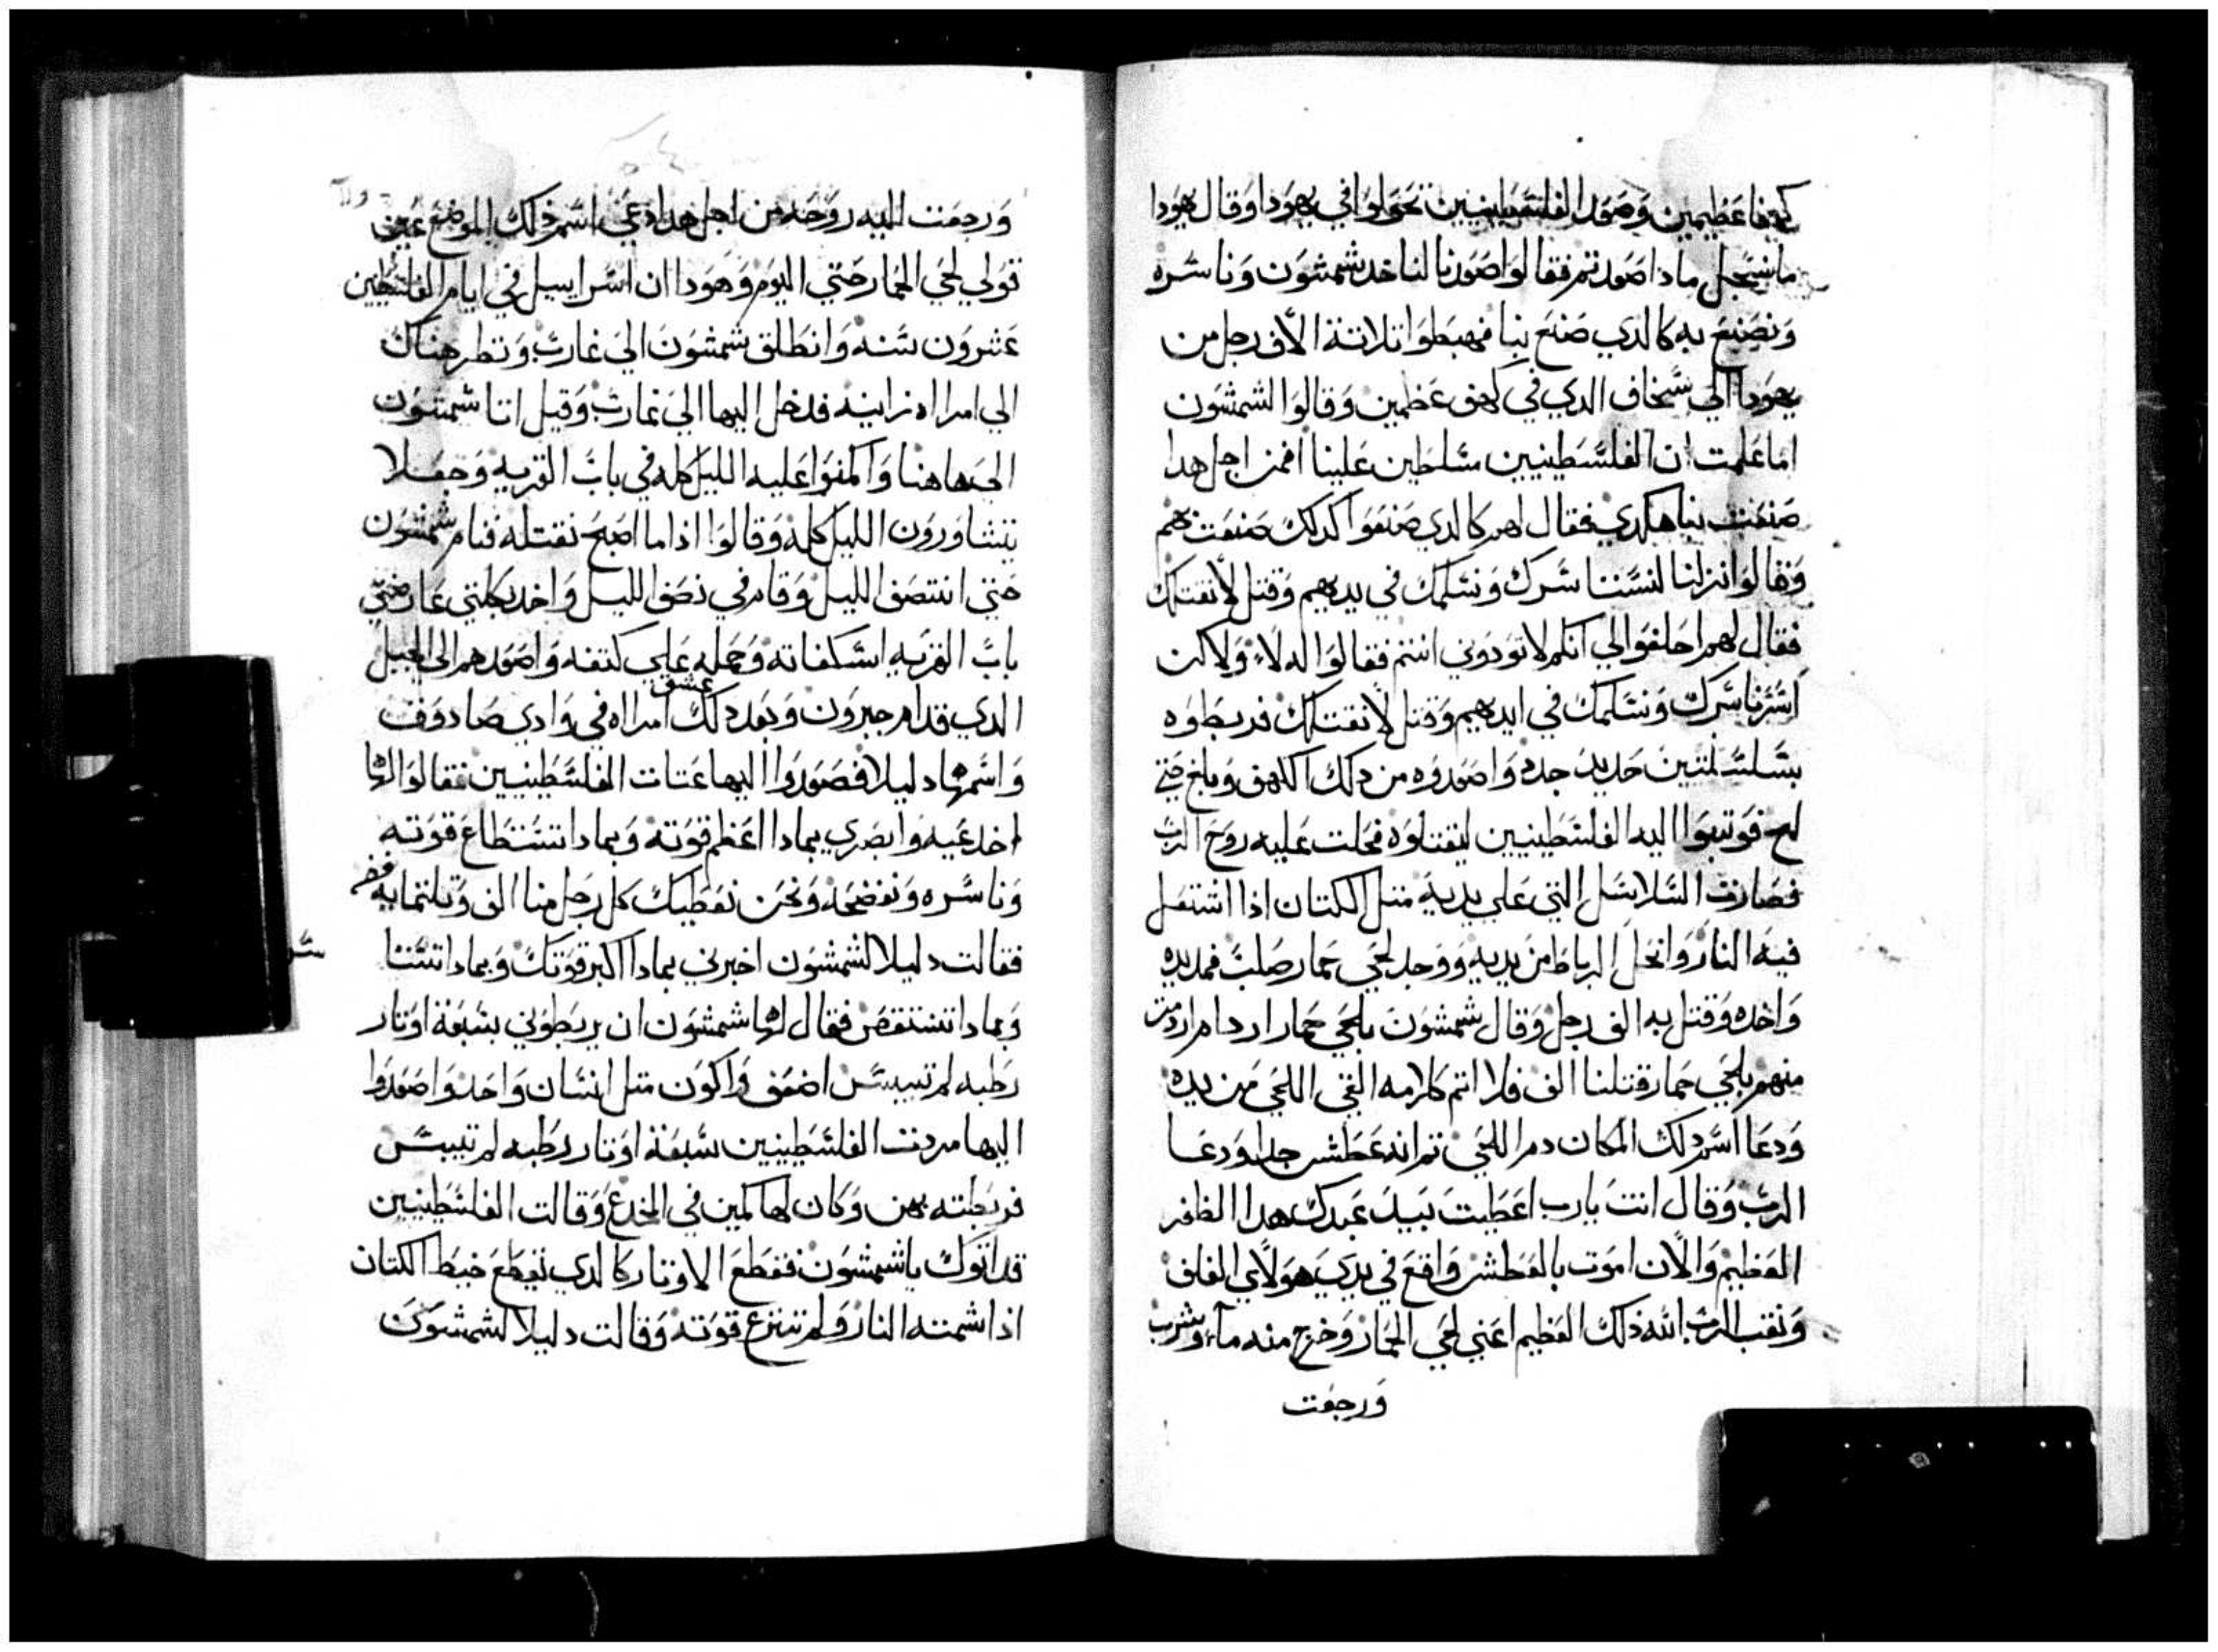 كهفا عظيمين وصعدا الفلسطينيين تحولوا في يهودا وقال يهودا
ماذا صعدتم فقالوا صعدنا لناخد شمشون وناسره
ونصنع به كالدي صنع بنا فهبطوا تلاتة الاف رجل من
يهودا الي شخاف الدي في كهف عظمين وقالوا الشمشون
اما علمت ان الفلسطينيين مسلطين علينا افمن اجل هدا
صنعت بنا هكدي فقال لهم كالدي صنعوا كدلك صنعت بهم
وقالوا نزلنا لنستنا سرك ونسلمك في يديهم وقتل لانقتلك
فقال لهم احلفوا لي انكم لا تودوني انتم فقالوا له لا ولاكن
اسرناسرك ونسلمك في ايديهم وقتل لانقتلك فربطوه
بسلسلتين حديد جدد واصعدوه من دلك الكهف وبلغ حتي
لحي فوتبوا اليه الفلسطينيين ليقتلوه فحلت عليه روح الرب
فصارت السلاسل التي علي يديه متل الكتان اذا اشتعل
فيه النار وانحل الرباط من يديه ووجد لحي حمار صلب فمد يده
واخده وقتل به الف رجل وقال شمشون بلحي حمار اردام اردمت
منهم بلحي حمار قتلنا الف فلا اتم كلامه القي اللحي من يده
ودعا اسم دلك المكان دم اللحي تم انه عطش جدا ودعا
الرب وقال انت يارب اعطيت بيد عبدك هدا الظفر
العظيم والان اموت بالعطش واقع في يدي هولاي الغلف
ونقب الرب الله ذلك العظيم اعني لحي الحمار وخرج منه ماء وشرب
ورجعت
ورجعت اليه روحه من اجل هدا دعي اسم دلك الموضع عين
تولي لحي الحمار حتي اليوم وهودا ان اسراييل في ايام الفلسطيين
عشرون سنه وانطلق شمشون الي غارث ونطر هناك
الي امراه زانيه فدخل اليها الي غارث وقيل اتا شمشون
الي هاهنا واكمنوا عليه الليل كله في باب القريه وجعلا
يتشاورون الليل كله وقالوا اذا ما اصبح نقتله فنام شمشون
حتي انتصف الليل وقام في نصف الليل واخد بكلتي عارضتي
باب القريه اسكفاته وحمله علي كتفه واصعدهم الي الجبل
الدي قدام حبرون وبعد دلك عشق امراه في وادي صادوف
واسمها دليلا فصعدوا اليها عتات الفلسطينيين فقالوا لها
اخدعيه وابصري بماداا عظم قوته وبمادا تستطاع قوته
وناسره ونفضحه ونحن نعطيك كل رجل منا الف وتلتمايه فضه
فقالت دليلا لشمشون اخبرني بمادا اكبر قوتك وبمادا تستنا
وبمادا تستنقص فقال لها شمشون ان يربطوني بسبعة اوتار
رطبه لم تيبس اضعف واكون متل انسان واحد واصعدوا
اليها مردت الفلسطينيين سبعة اوتار رطبه لم تيبس
فربطته بهن وكان لها كمين في المخدع وقالت الفلسطينيين
قد اتوك ياشمشون فقطع الاوتار كالدي تقطع خيط الكتان
اذا شمته النار ولم تنزع قوته وقالت دليلا لشمشون